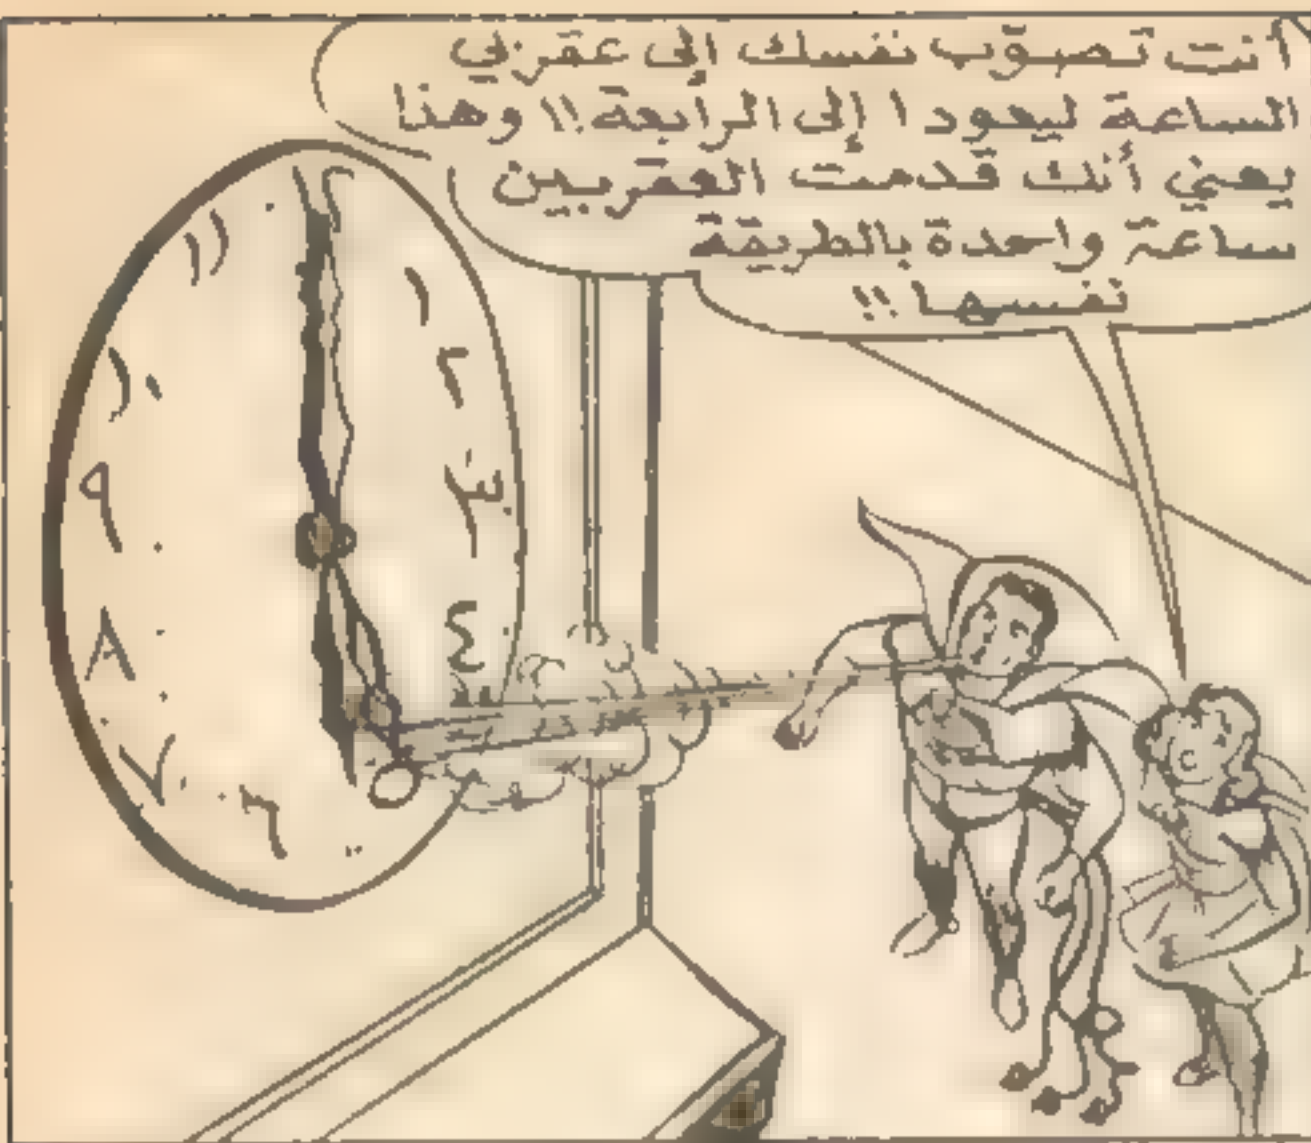 أنت تصوّب نفسك إلى عقربي
الساعة ليعودا إلى الرابعة !! وهذا
يعني أنك قدمت العقربين
ساعة واحدة بالطريقة
نفسها !!
١١
١
١٠
٢
٩
٣
٨
٤
٧
٦